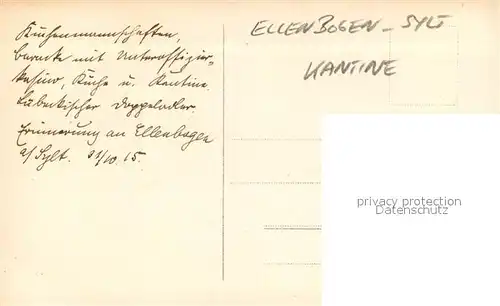 Küchenmannschaften,
baracke mit Unteroffizier-
kasino, Küche u. Kantine
Lübeckischer Doppeladler.
Erinnerung an Ellenbogen
a/ Sylt. 31/10 15.
ELLENBOGEN - SYLT
KANTINE
privacy protection
Datenschutz